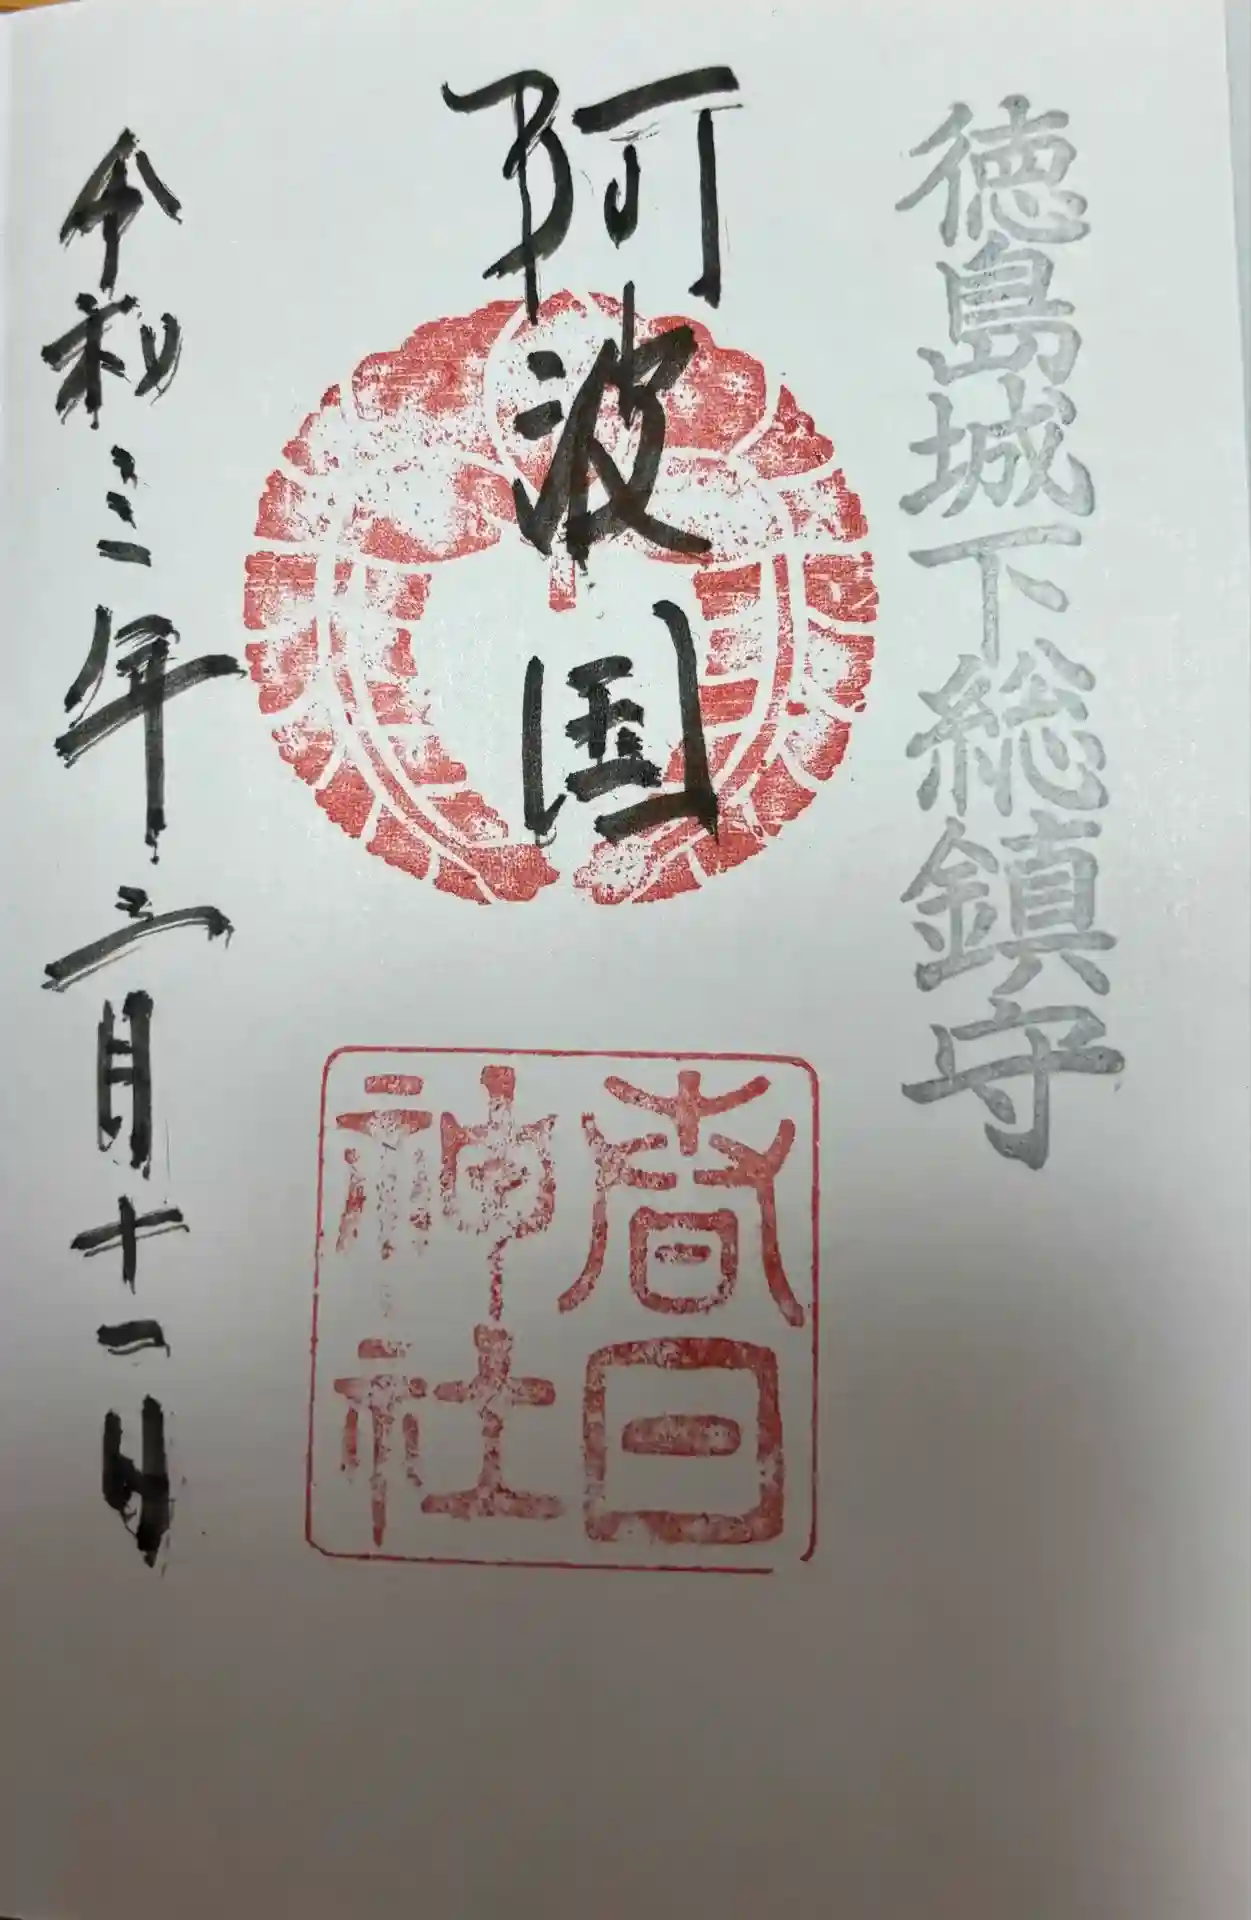 徳島城下総鎮守
阿波国
春日
神社
令和三年二月十一日